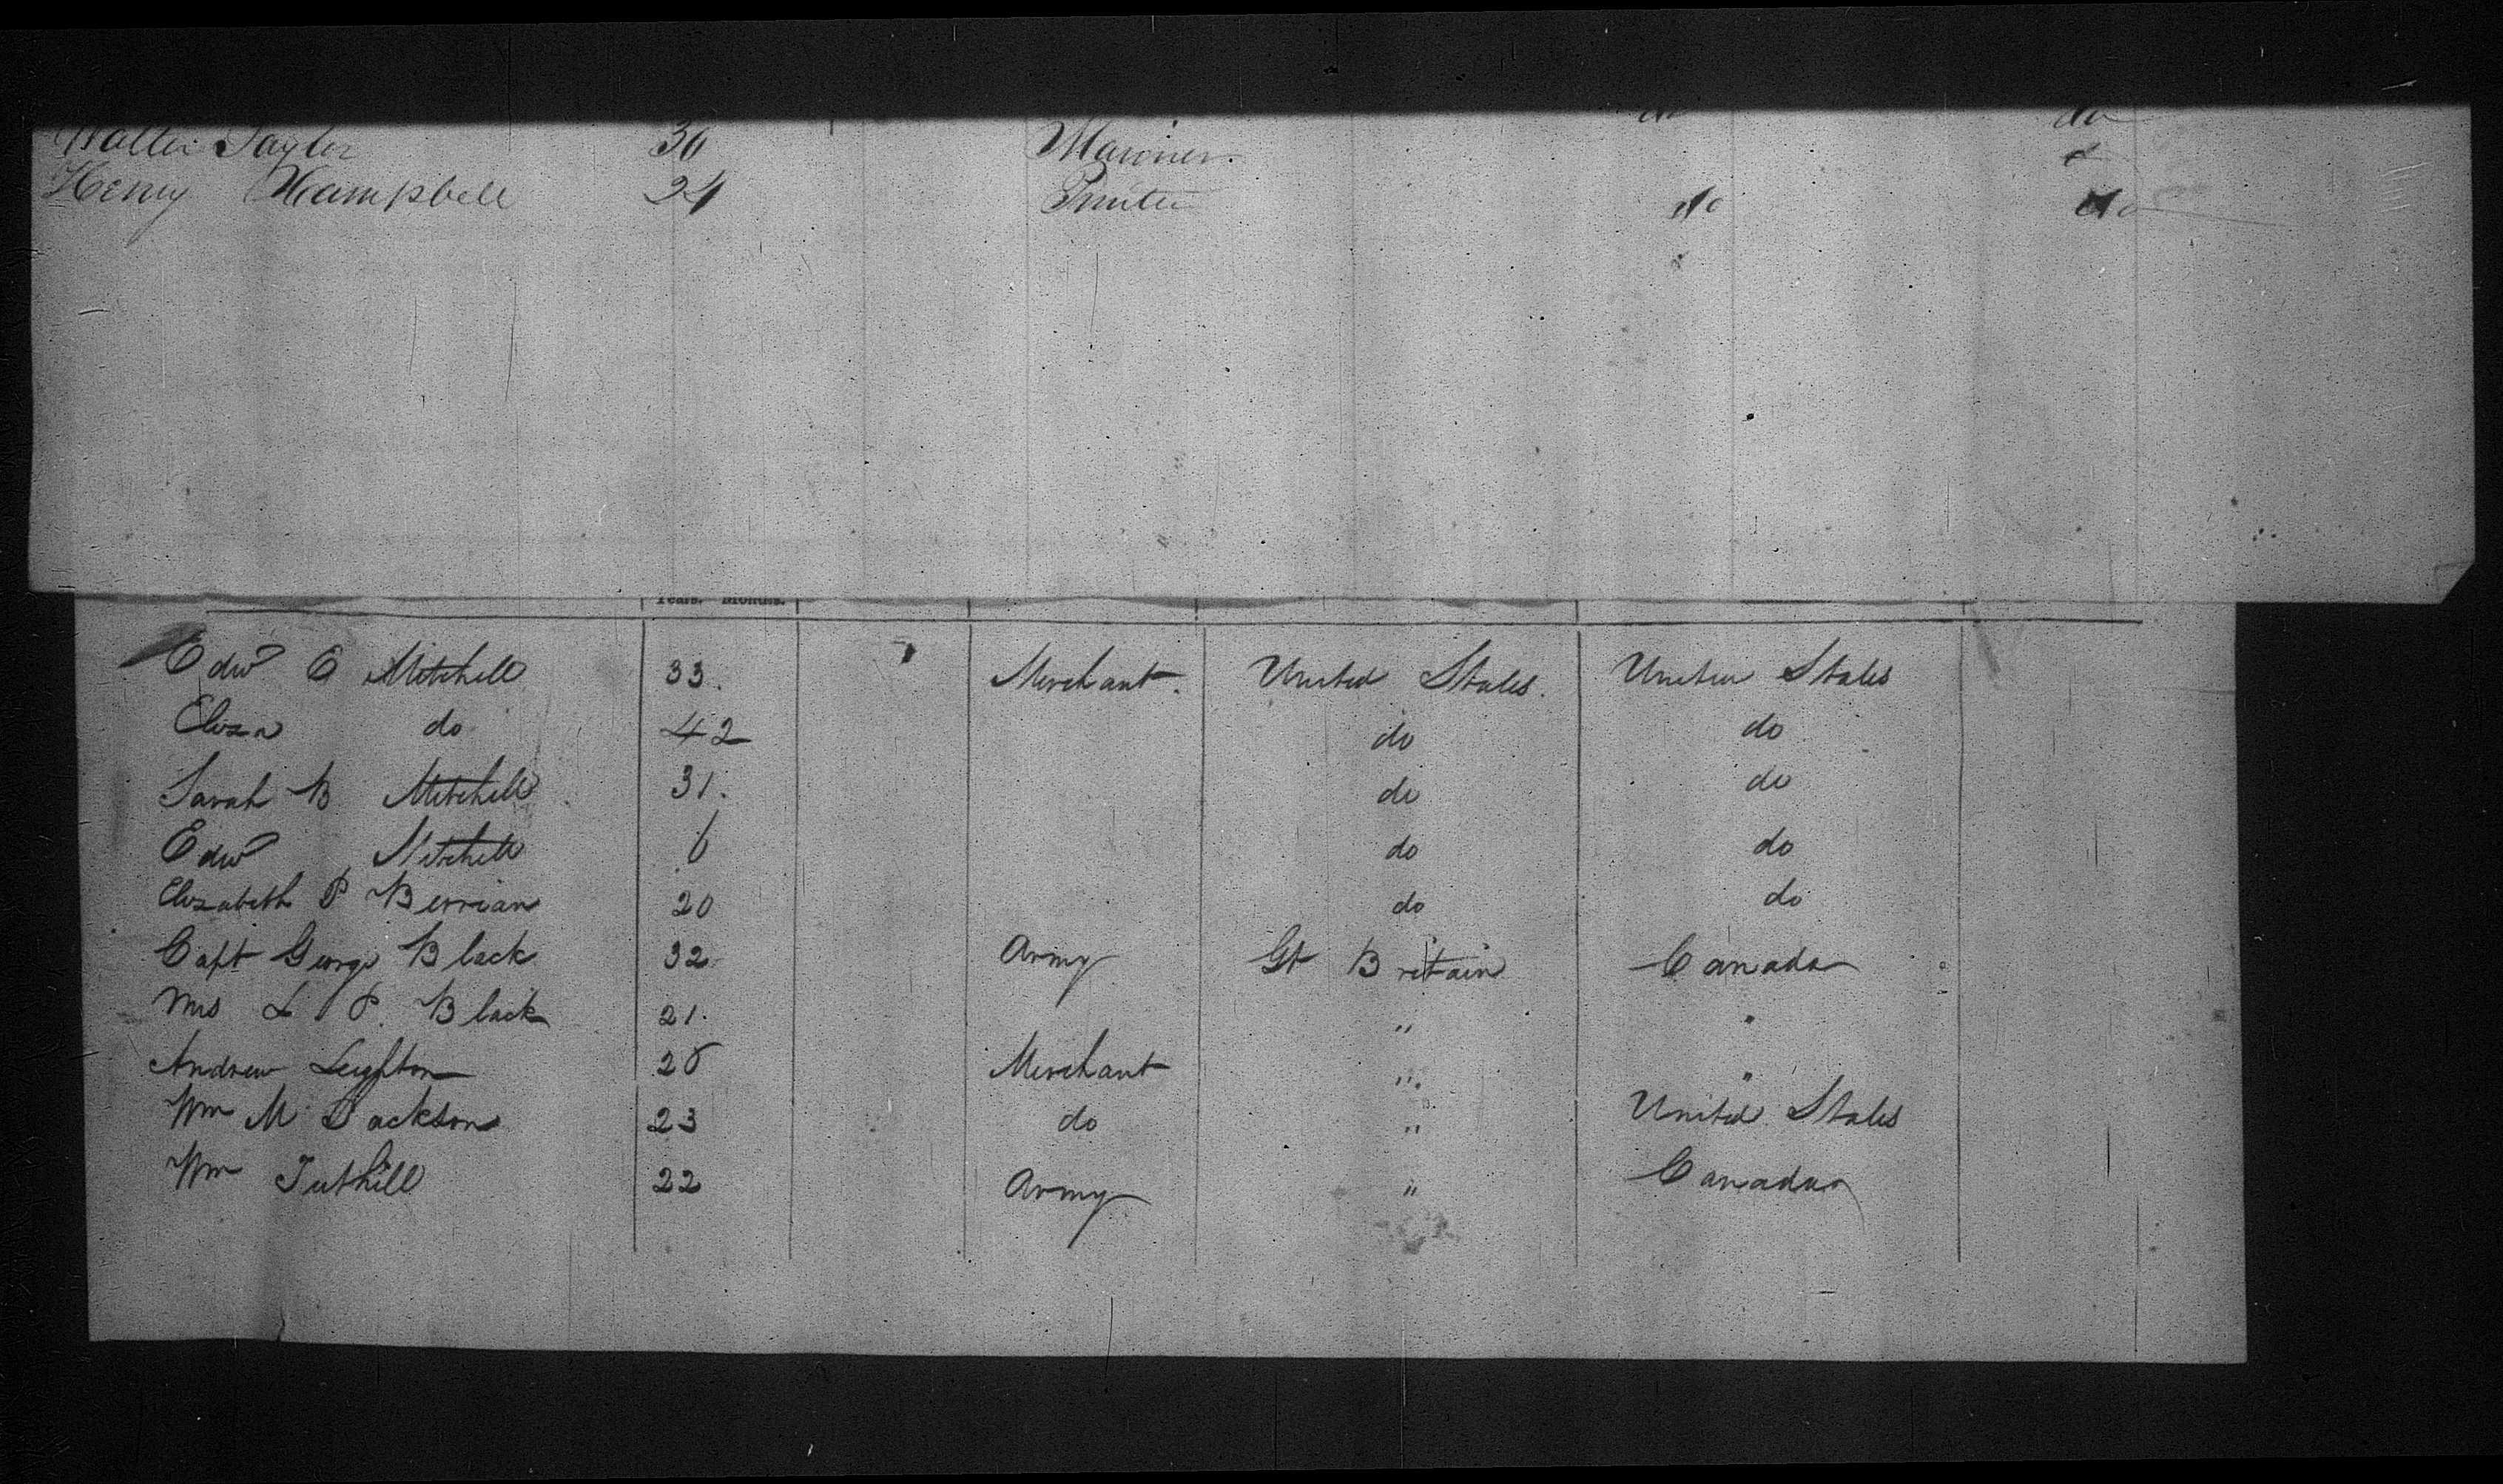 do do
Walter Taylor 30 Mariner. do
Henry Hampbell 24 do do
Years. Months.
Edwd E Mitchell 33. Merchant. United States. United States
Eliza do 42 do do
Sarah B Mitchell 31. do do
Edwd Mitchell 6 do do
Elizabeth P Berrian 20 do do
Capt George Black 32 Army Gt Britain Canada
Mrs L P. Black 21. " "
Andrew Leighton 28 Merchant " "
Wm M Jackson 23 do " United States
Wm Tuthill 22 Army " Canada